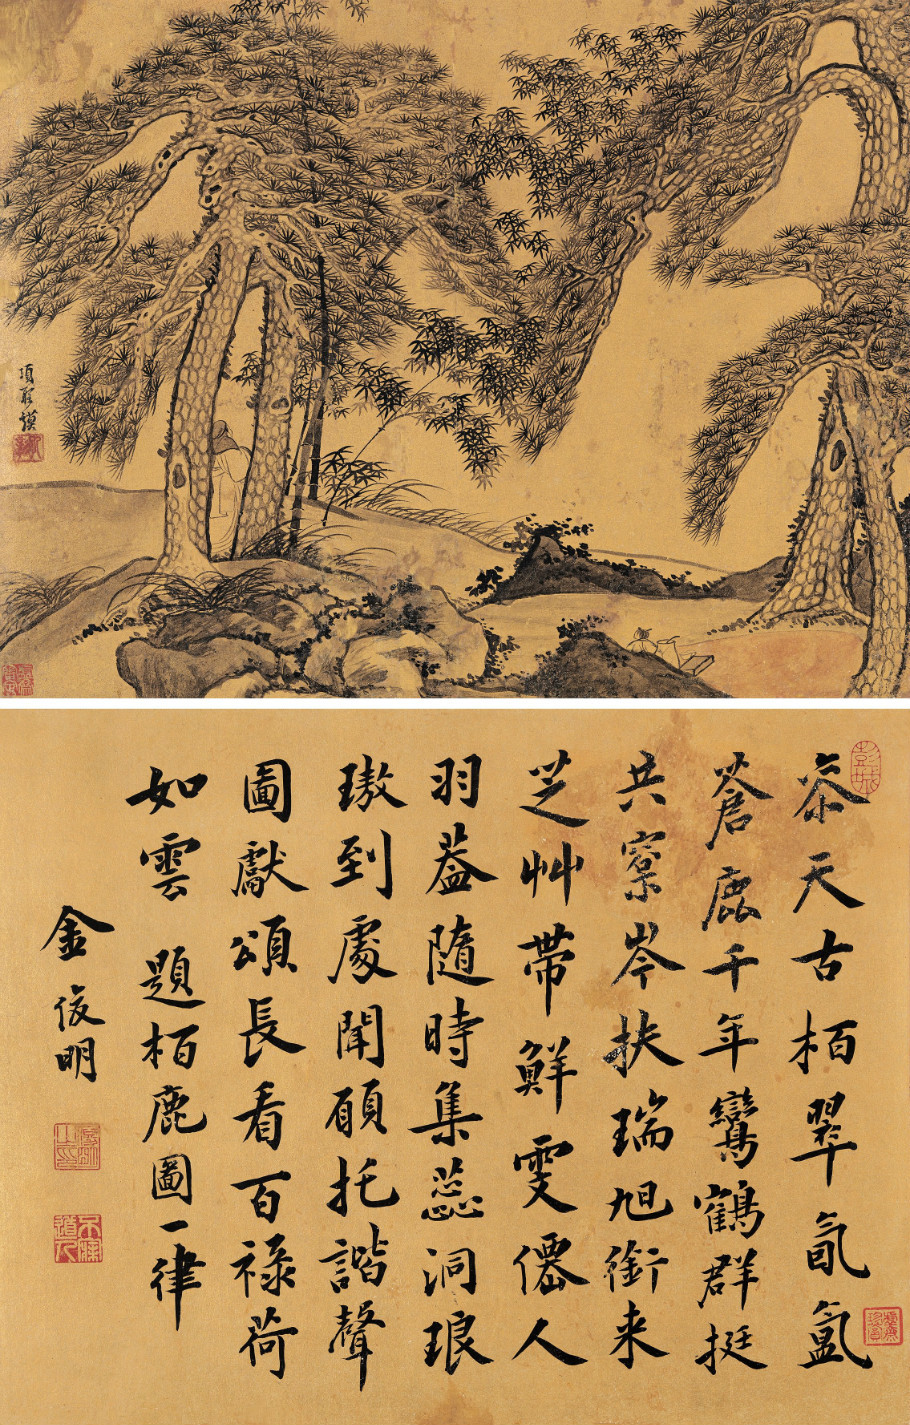 項聖謨
叅天古栢翠氤氳
蒼鹿千年鸞鶴群挺
共寮岑扶瑞旭銜来
芝艸帶鮮雯僊人
羽葢隨時集蕊洞琅
璈到處聞願托諧聲
圖獻頌長看百祿荷
如雲 題栢鹿圖一律
金俊明
不寐道人